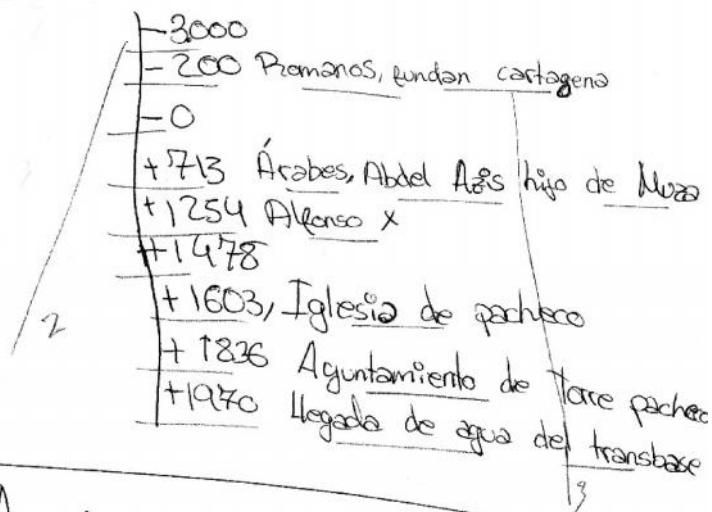 -3000
-200 Romanos, fundan cartagena
-0
+713 Árabes, Abdel Azis hijo de Muza
+1254 Alfonso X
+1478
+1603, Iglesia de pacheco
+1836 Ayuntamiento de Torre pacheco
+1970 Llegada de agua del transbase
2
3